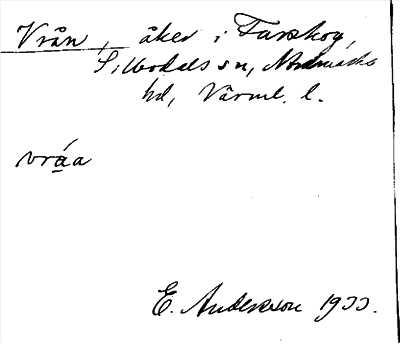 Vrån, åker i Tarskog,
Silbodals sn, Nordmarks
hd, Värml. l.
vrá̱a
E. Andersson 1933.